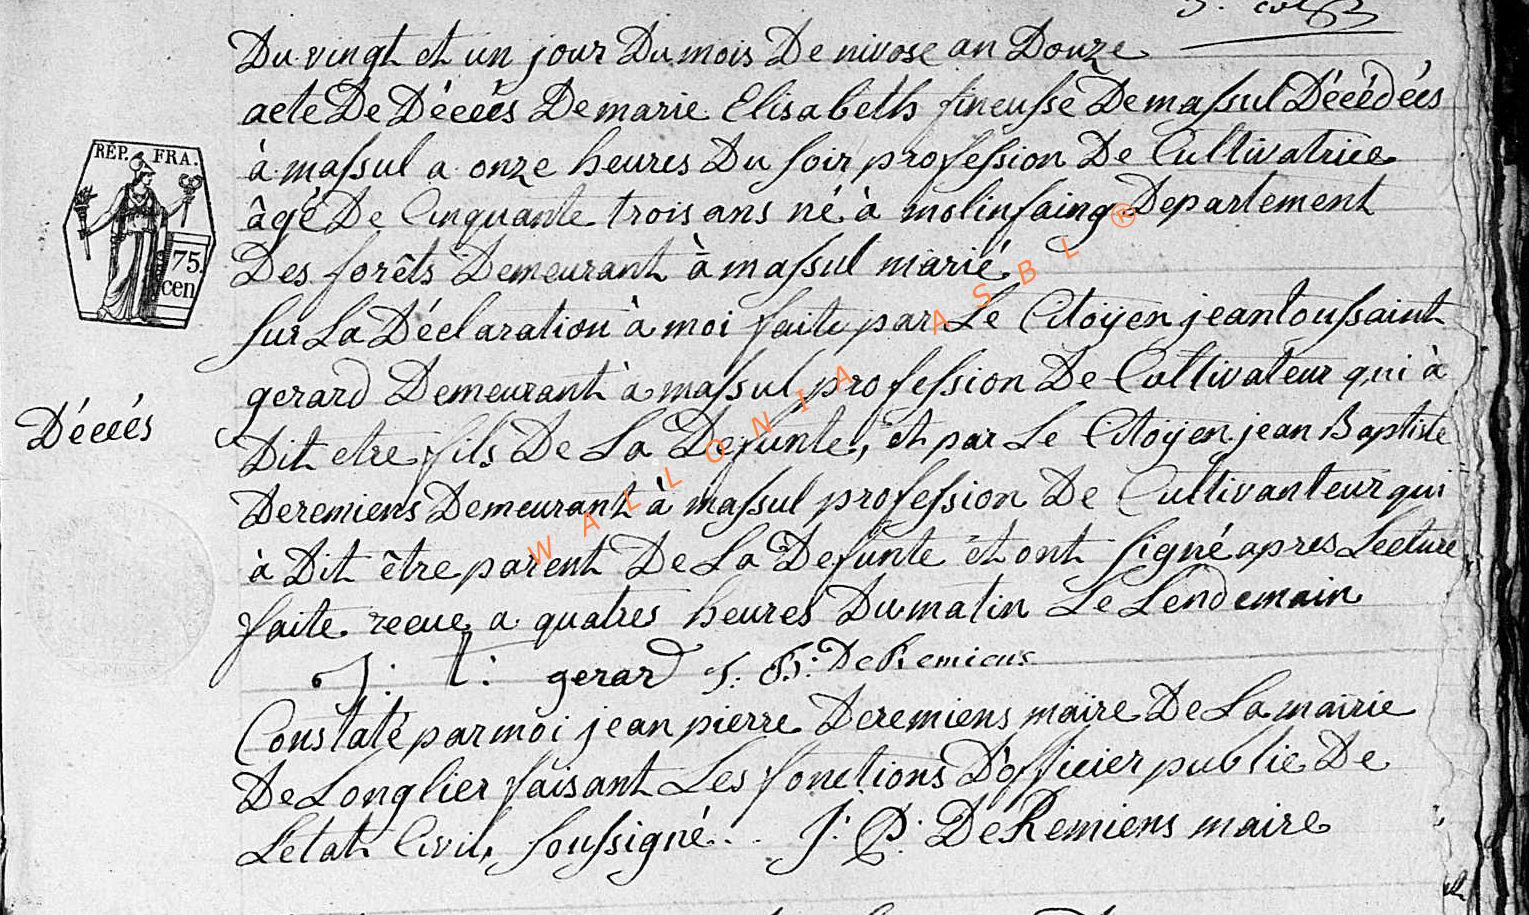 Du vingt et un jour Du mois De nivose an Douze
acte De Décéés De marie Elisabeth fineusse De massul Décédéés
à massul a onze heures Du soir profession De Cultivatrice
âgé De Cinquante trois ans né à molinfaing Departement
Des forêts Demeurant à massul marié
sur La Déclaration à moi faite par Le Citoÿen jean toussaint
gerard Demeurant à massul profession De Cultivateur qui à
Dit etre fils De La Defunte, et par Le Citoÿen jean Baptiste
Deremiens Demeurant à massul profession De Cultivanteur qui
à Dit être parent De La Defunte et ont signé apres Lecture
faite recue a quatres heures Du matin Le Lendemain
J: t: gerard J: B: DeRemiens
Constaté par moi jean pierre Deremiens maire De La mairie
De Longlier faisant Les fonctions D'officier public De
Letat Civil, soussigné. J: P: DeRemiens maire
RÉP. FRA.
75.
cen
Décéés
WALLONIA ASBL ®